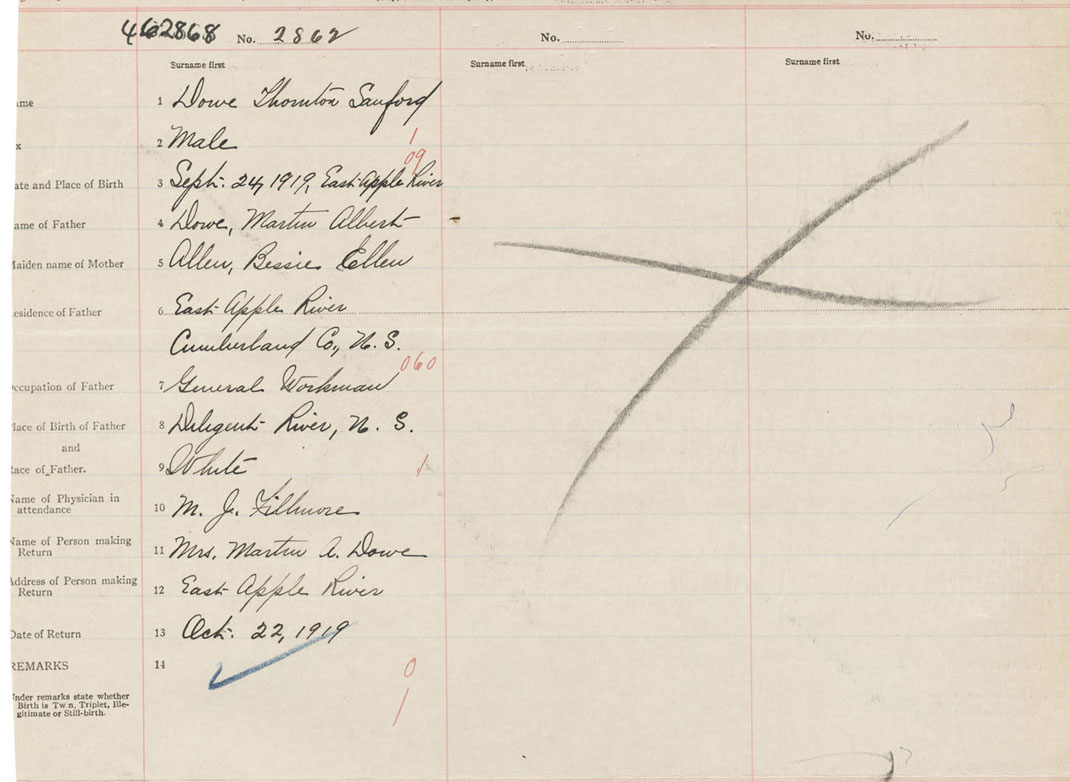 462868 No. 2862 No. No.
Surname first Surname first Surname first
ame 1 Dowe Thornton Sanford
x 2 Male 1
09
ate and Place of Birth 3 Sept. 24, 1919, East Apple River
ame of Father 4 Dowe, Martin Albert
Maiden name of Mother 5 Allen, Bessie Ellen
esidence of Father 6 East Apple River
Cumberland Co., N. S.
060
ccupation of Father 7 General Workman
lace of Birth of Father 8 Diligent River, N. S.
and
ace of Father. 9 White 1
Name of Physician in
attendance 10 M. J. Fillmore
Name of Person making
Return 11 Mrs. Martin A. Dowe
Address of Person making
Return 12 East Apple River
Date of Return 13 Oct. 22, 1919
REMARKS 14
0
Under remarks state whether
Birth is Tw n, Triplet, Ille-
gitimate or Still-birth.
1